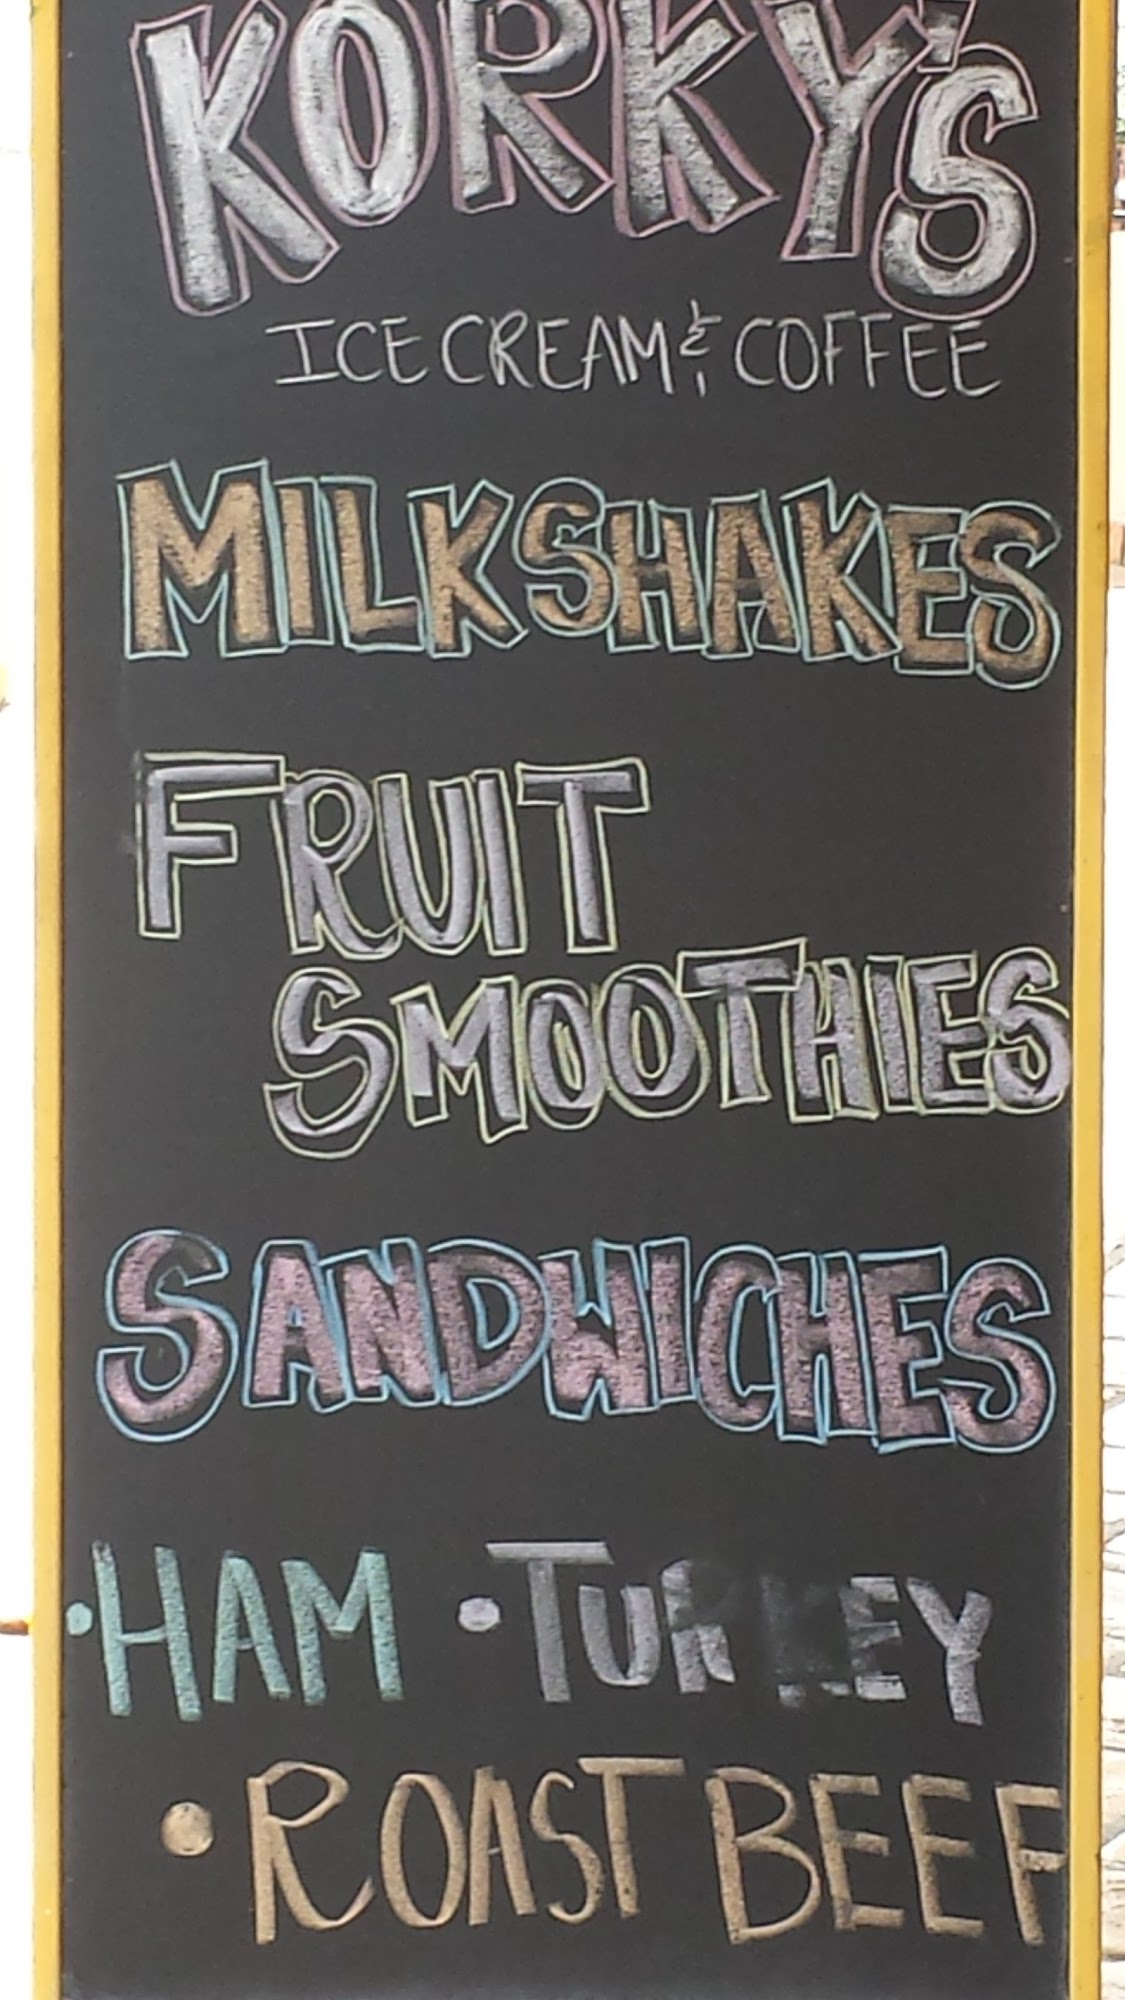 KORKY'S
ICE CREAM & COFFEE
MILKSHAKES
FRUIT
SMOOTHIES
SANDWICHES
•HAM •TURKEY
•ROAST BEEF